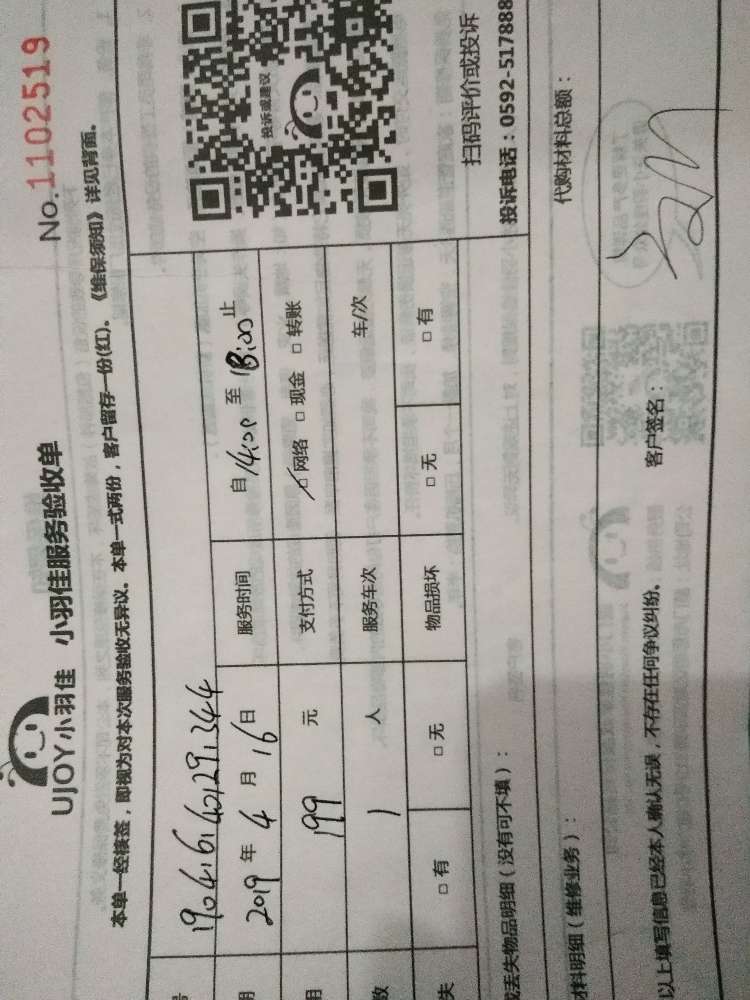 UJOY小羽佳 小羽佳服务验收单 No.1102519
本单一经核签，即视为对本次服务验收无异议。本单一式两份，客户留存一份(红)。《维保须知》详见背面。
号
期 2019 年 4 月 16 日 服务时间 自 14:00 至 18:00 止
用 199 元 支付方式 □ 网络 □ 现金 □ 转账
数 1 人 服务车次 车/次
失 □ 有 □ 无 物品损坏 □ 无 □ 有
投诉或建议
扫码评价或投诉
投诉电话：0592-517888
或丢失物品明细（没有可不填）：
材料明细（维修业务）： 代购材料总额：
以上填写信息已经本人确认无误，不存在任何争议纠纷。 客户签名：